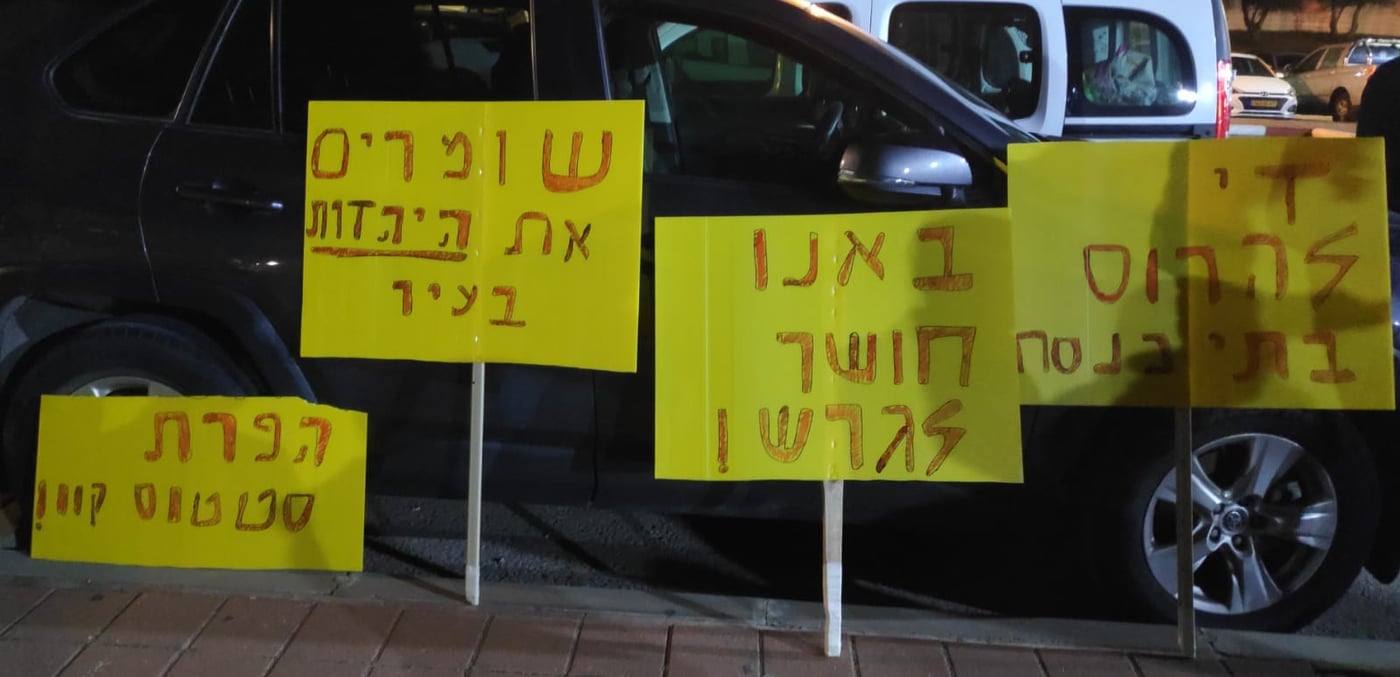 שומרים
את היהדות
בעיר
הפרת
סטטוס קוו!
באנו
חושך
לגרש!
די
להרוס
בתי כנסת